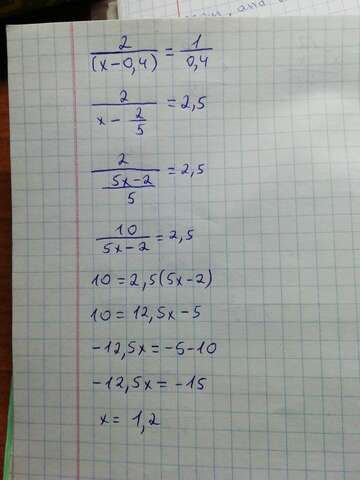 2/(x-0,4) = 1/0,4
2/(x - 2/5) = 2,5
2/((5x-2)/5) = 2,5
10/(5x-2) = 2,5
10 = 2,5(5x-2)
10 = 12,5x-5
-12,5x = -5-10
-12,5x = -15
x = 1,2